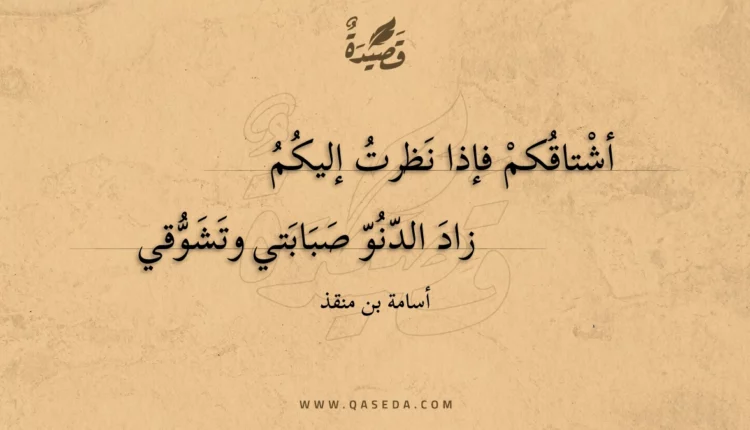 قَصِيدَةٌ
أشْتاقُكمْ فإذا نَظرتُ إليكُمُ
زادَ الدّنُوّ صَبَابَتي وتَشَوُّقي
أسامة بن منقذ
WWW.QASEDA.COM